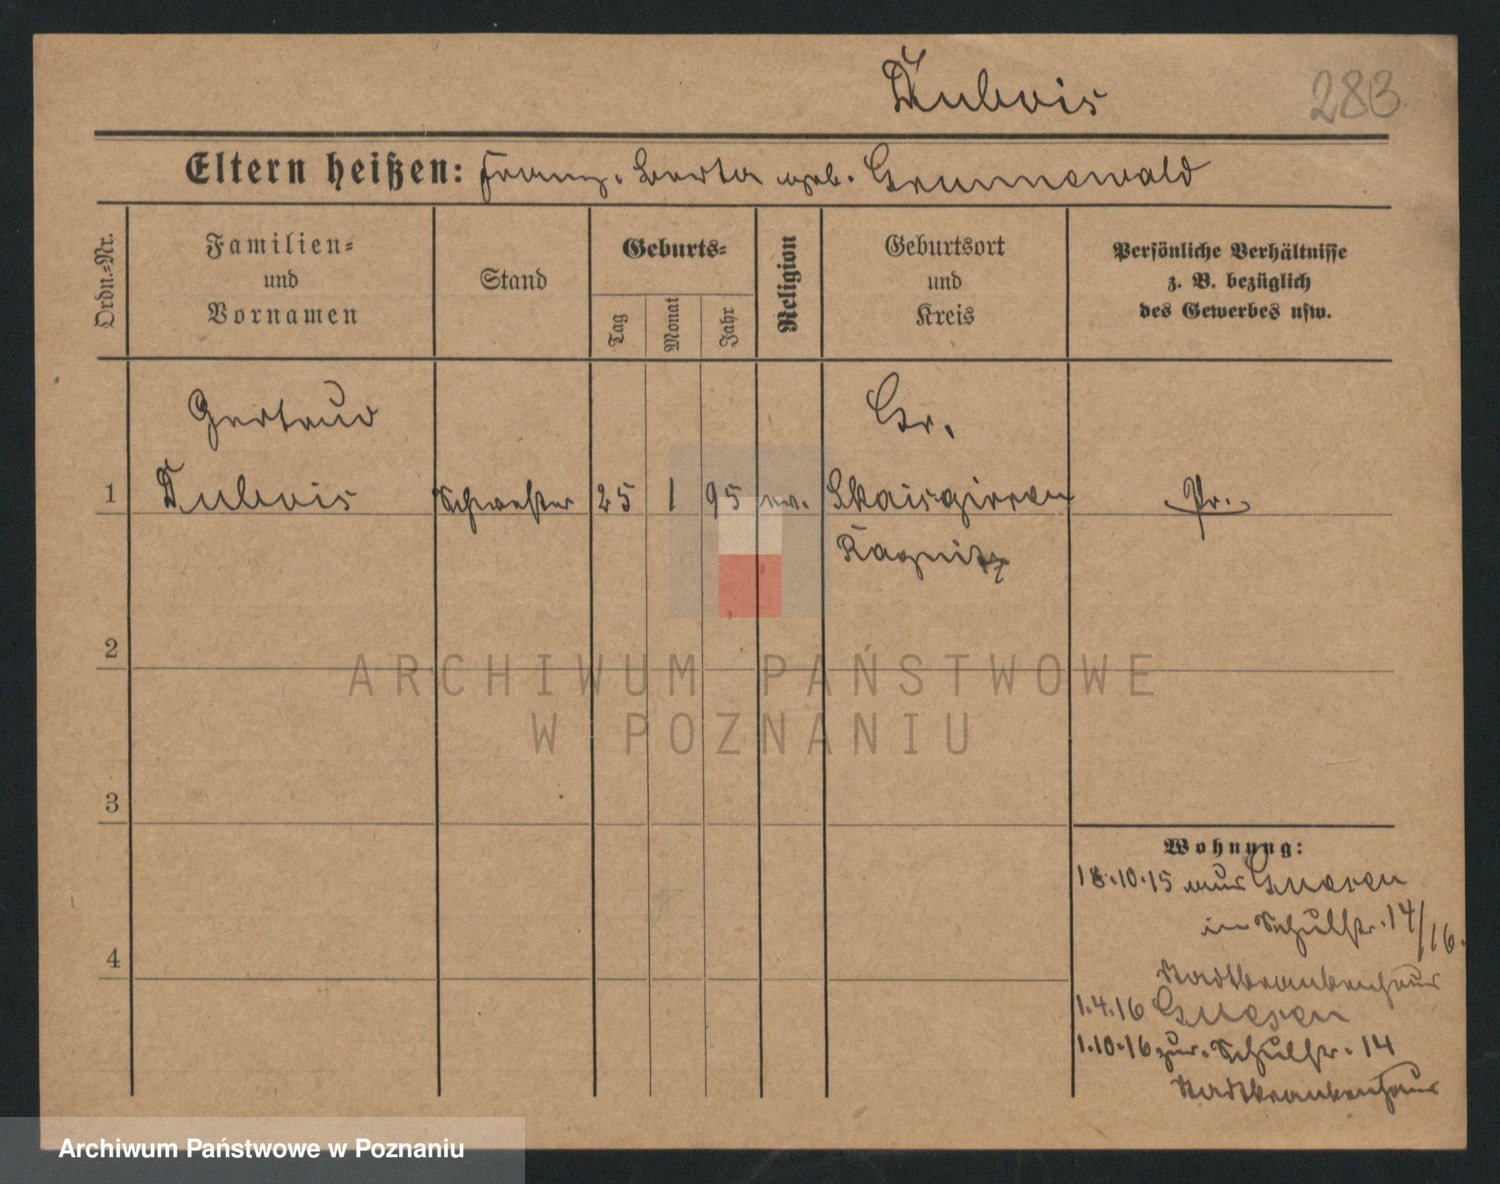 Dubois
283
Eltern heißen: Franz. Berta geb. Grunnewald
Ordn.=Nr.
Familien=
und
Vornamen
Stand
Geburts=
Tag
Monat
Jahr
Religion
Geburtsort
und
Kreis
Persönliche Verhältnisse
z. B. bezüglich
des Gewerbes usw.
Gertrud
Gr.
1 Dubois Schwester 25 1 95 ev. Skaisgirren Pr.
Ragnit
2
3
4
Wohnung:
18.10.15 aus Gnesen
in Schulstr. 14/16.
Stadtkrankenhaus
1.4.16 Gnesen
1.10.16 zur. Schulstr. 14
Stadtkrankenhaus
ARCHIWUM PAŃSTWOWE
W POZNANIU
Archiwum Państwowe w Poznaniu